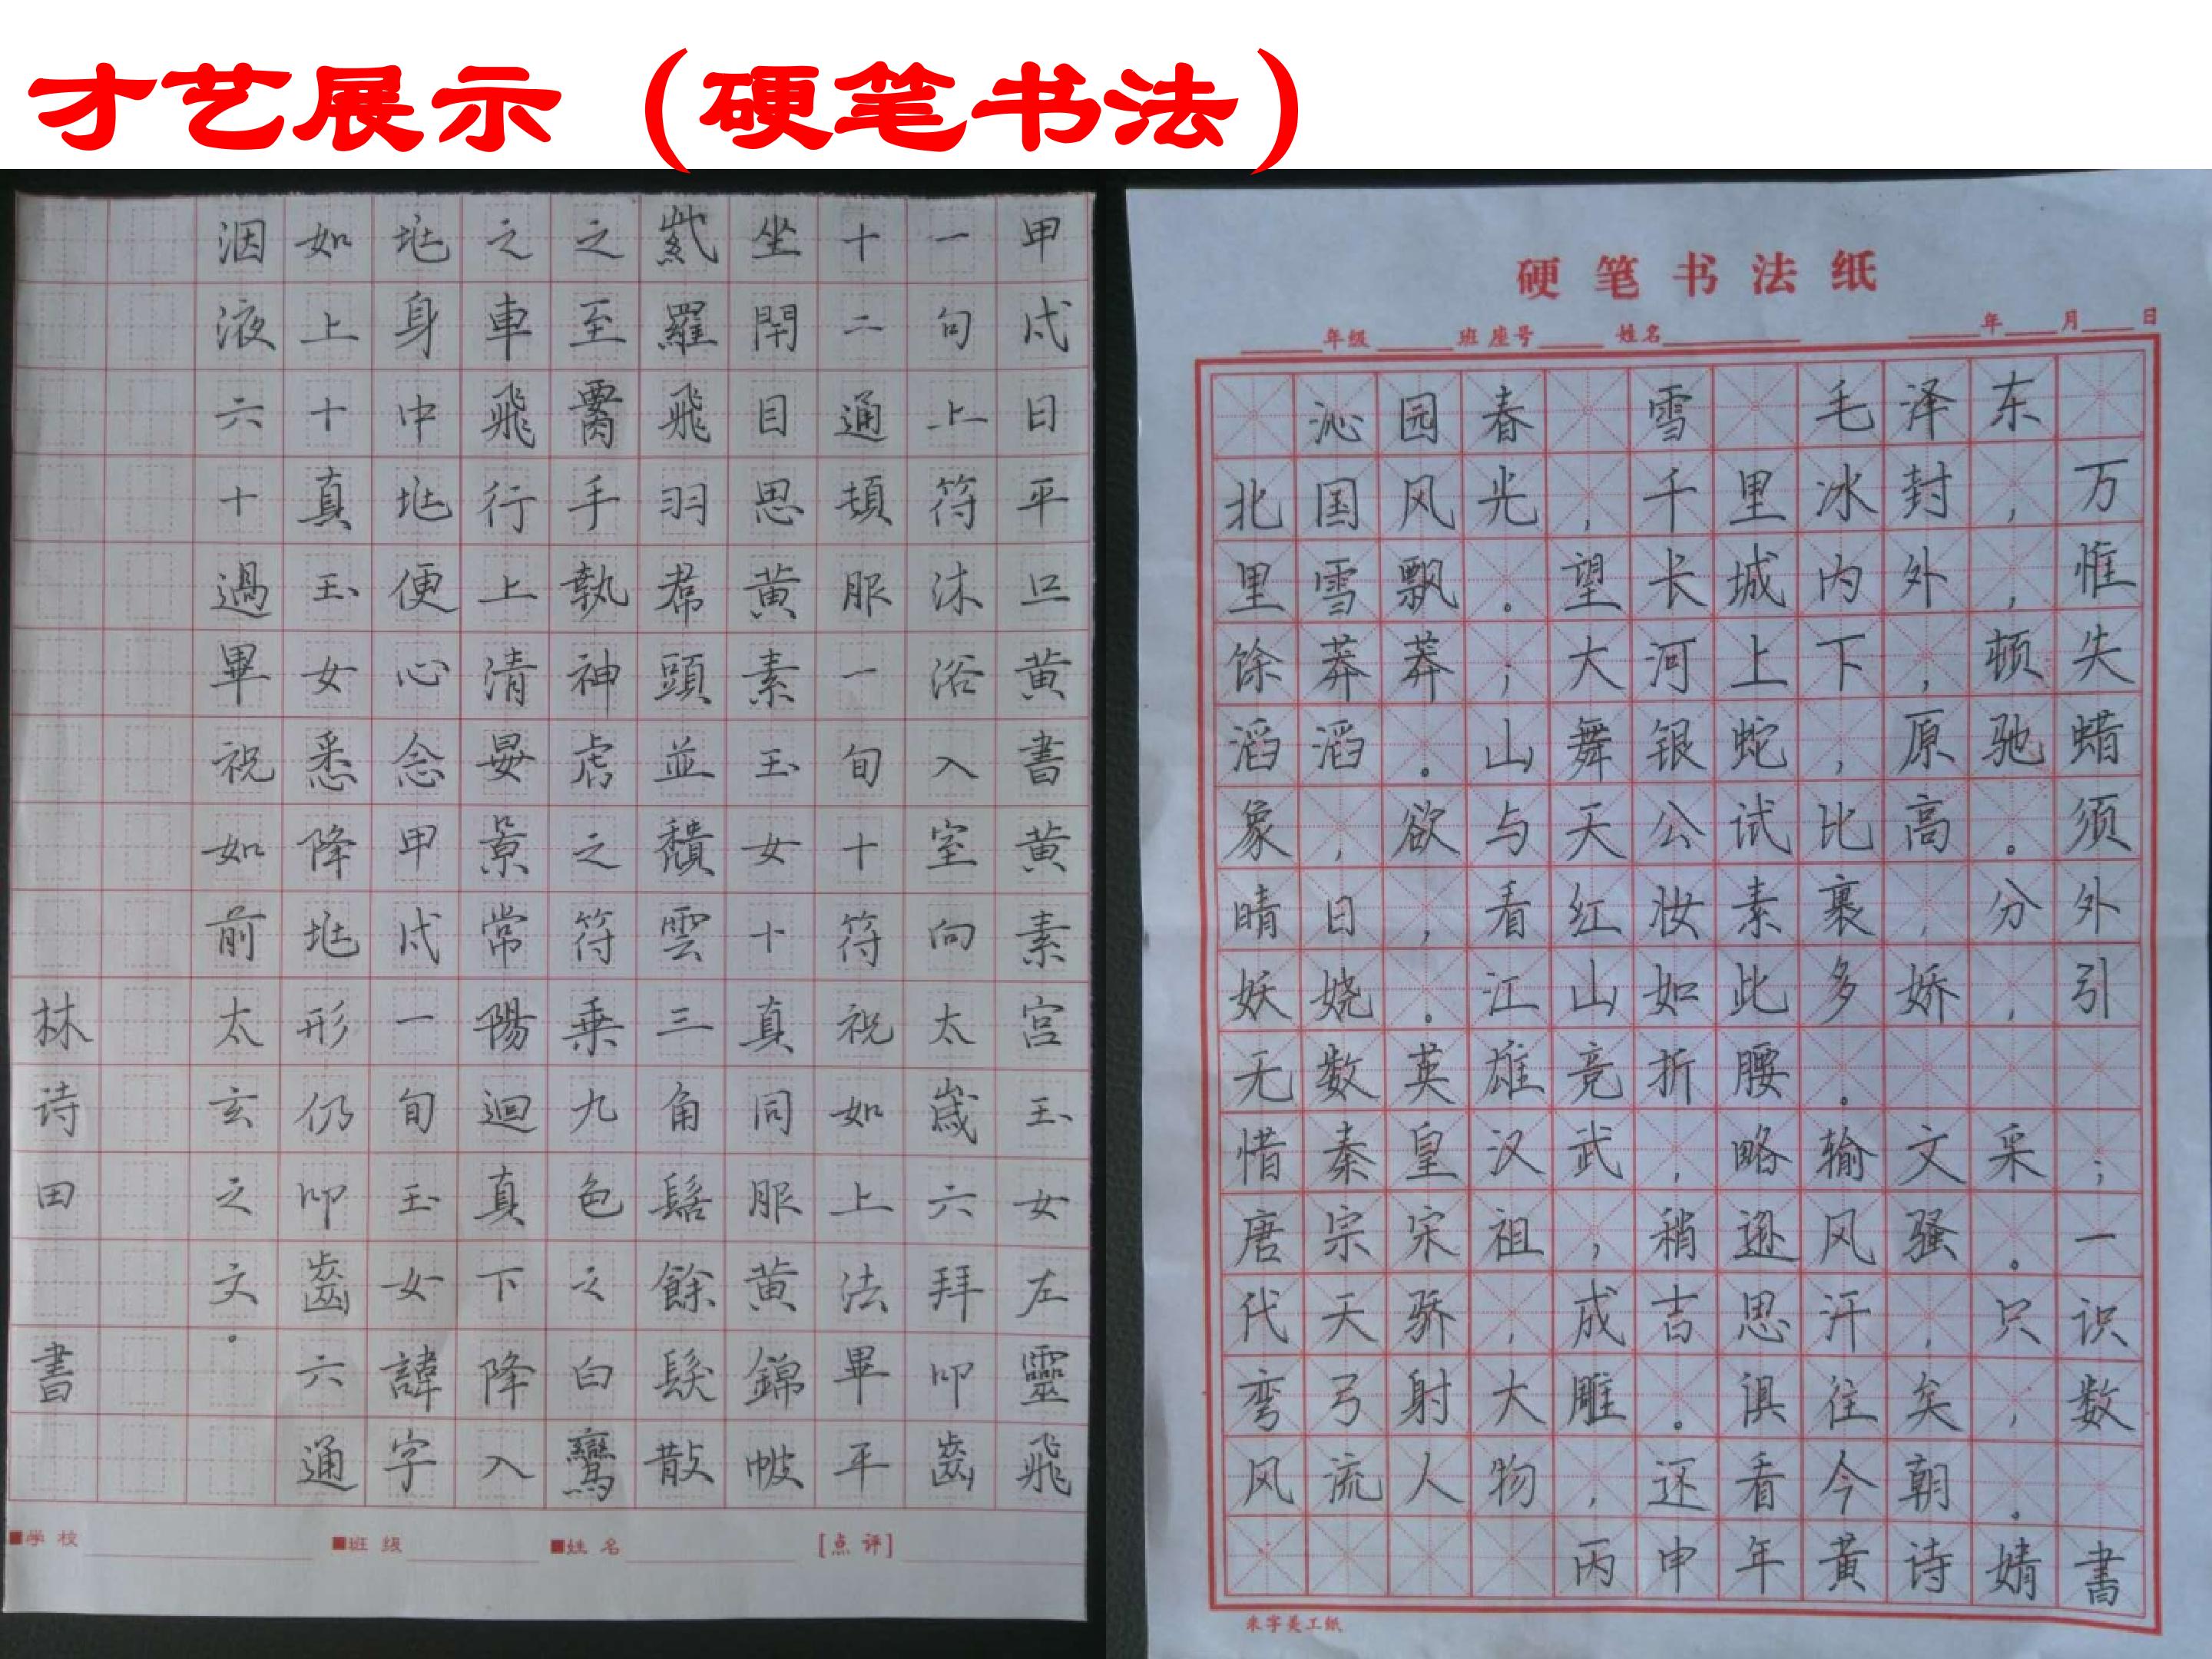 才艺展示（硬笔书法）
甲戌日平旦黄書黄素宫玉女左靈飛
一旬上符沐浴入室向太歲六拜叩齒
十二通頓服一旬十符祝如上法畢平
坐閉目思黄素玉女十真同服黄錦帔
紫羅飛羽裙頭並頹雲三角髻餘髮散
之至腰手執神虎之符乗九色之白鸞
之車飛行上清晏景常陽迴真下降入
兆身中兆便心念甲戌一旬玉女諱字
如上十真玉女悉降兆形仍叩齒六通
咽液六十過畢祝如前太玄之文。
林诗田書
■学校 ■班级 ■姓名 [点评]
硬笔书法纸
年级 班 座号 姓名 年 月 日
沁园春 雪 毛泽东
北国风光，千里冰封，万
里雪飘。望长城内外，惟
馀莽莽；大河上下，顿失
滔滔。山舞银蛇，原驰蜡
象，欲与天公试比高。须
晴日，看红妆素裹，分外
妖娆。江山如此多娇，引
无数英雄竞折腰。
惜秦皇汉武，略输文采；
唐宗宋祖，稍逊风骚。一
代天骄，成吉思汗，只识
弯弓射大雕。俱往矣，数
风流人物，还看今朝。
丙申年黄诗婧書
米字美工纸